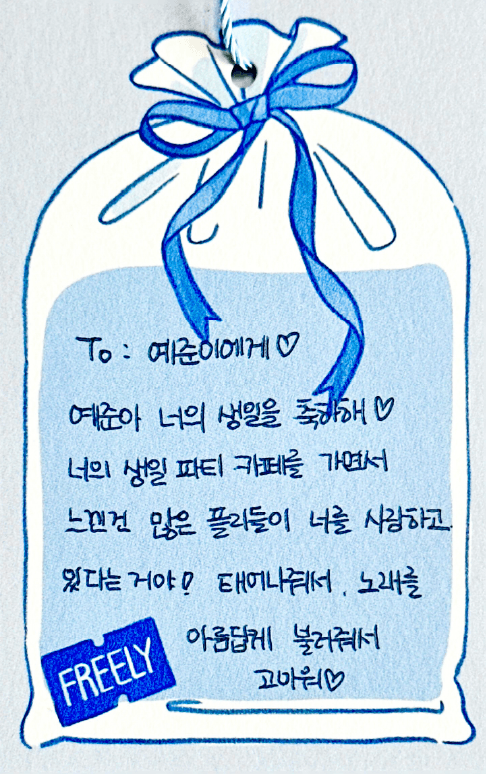 To : 예준이에게♡
예준아 너의 생일을 축하해♡
너의 생일 파티 카페를 가면서
느낀건 많은 플리들이 너를 사랑하고
있다는거야! 태어나줘서, 노래를
아름답게 불러줘서
고마워♡
FREELY